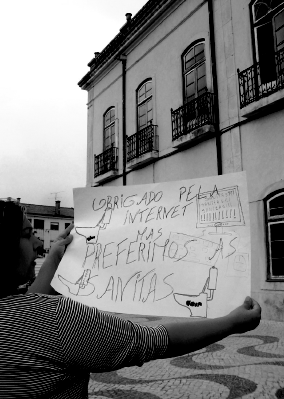 OBRIGADO PELA
INTERNET
MAS
PREFERIMOS AS
SANITAS